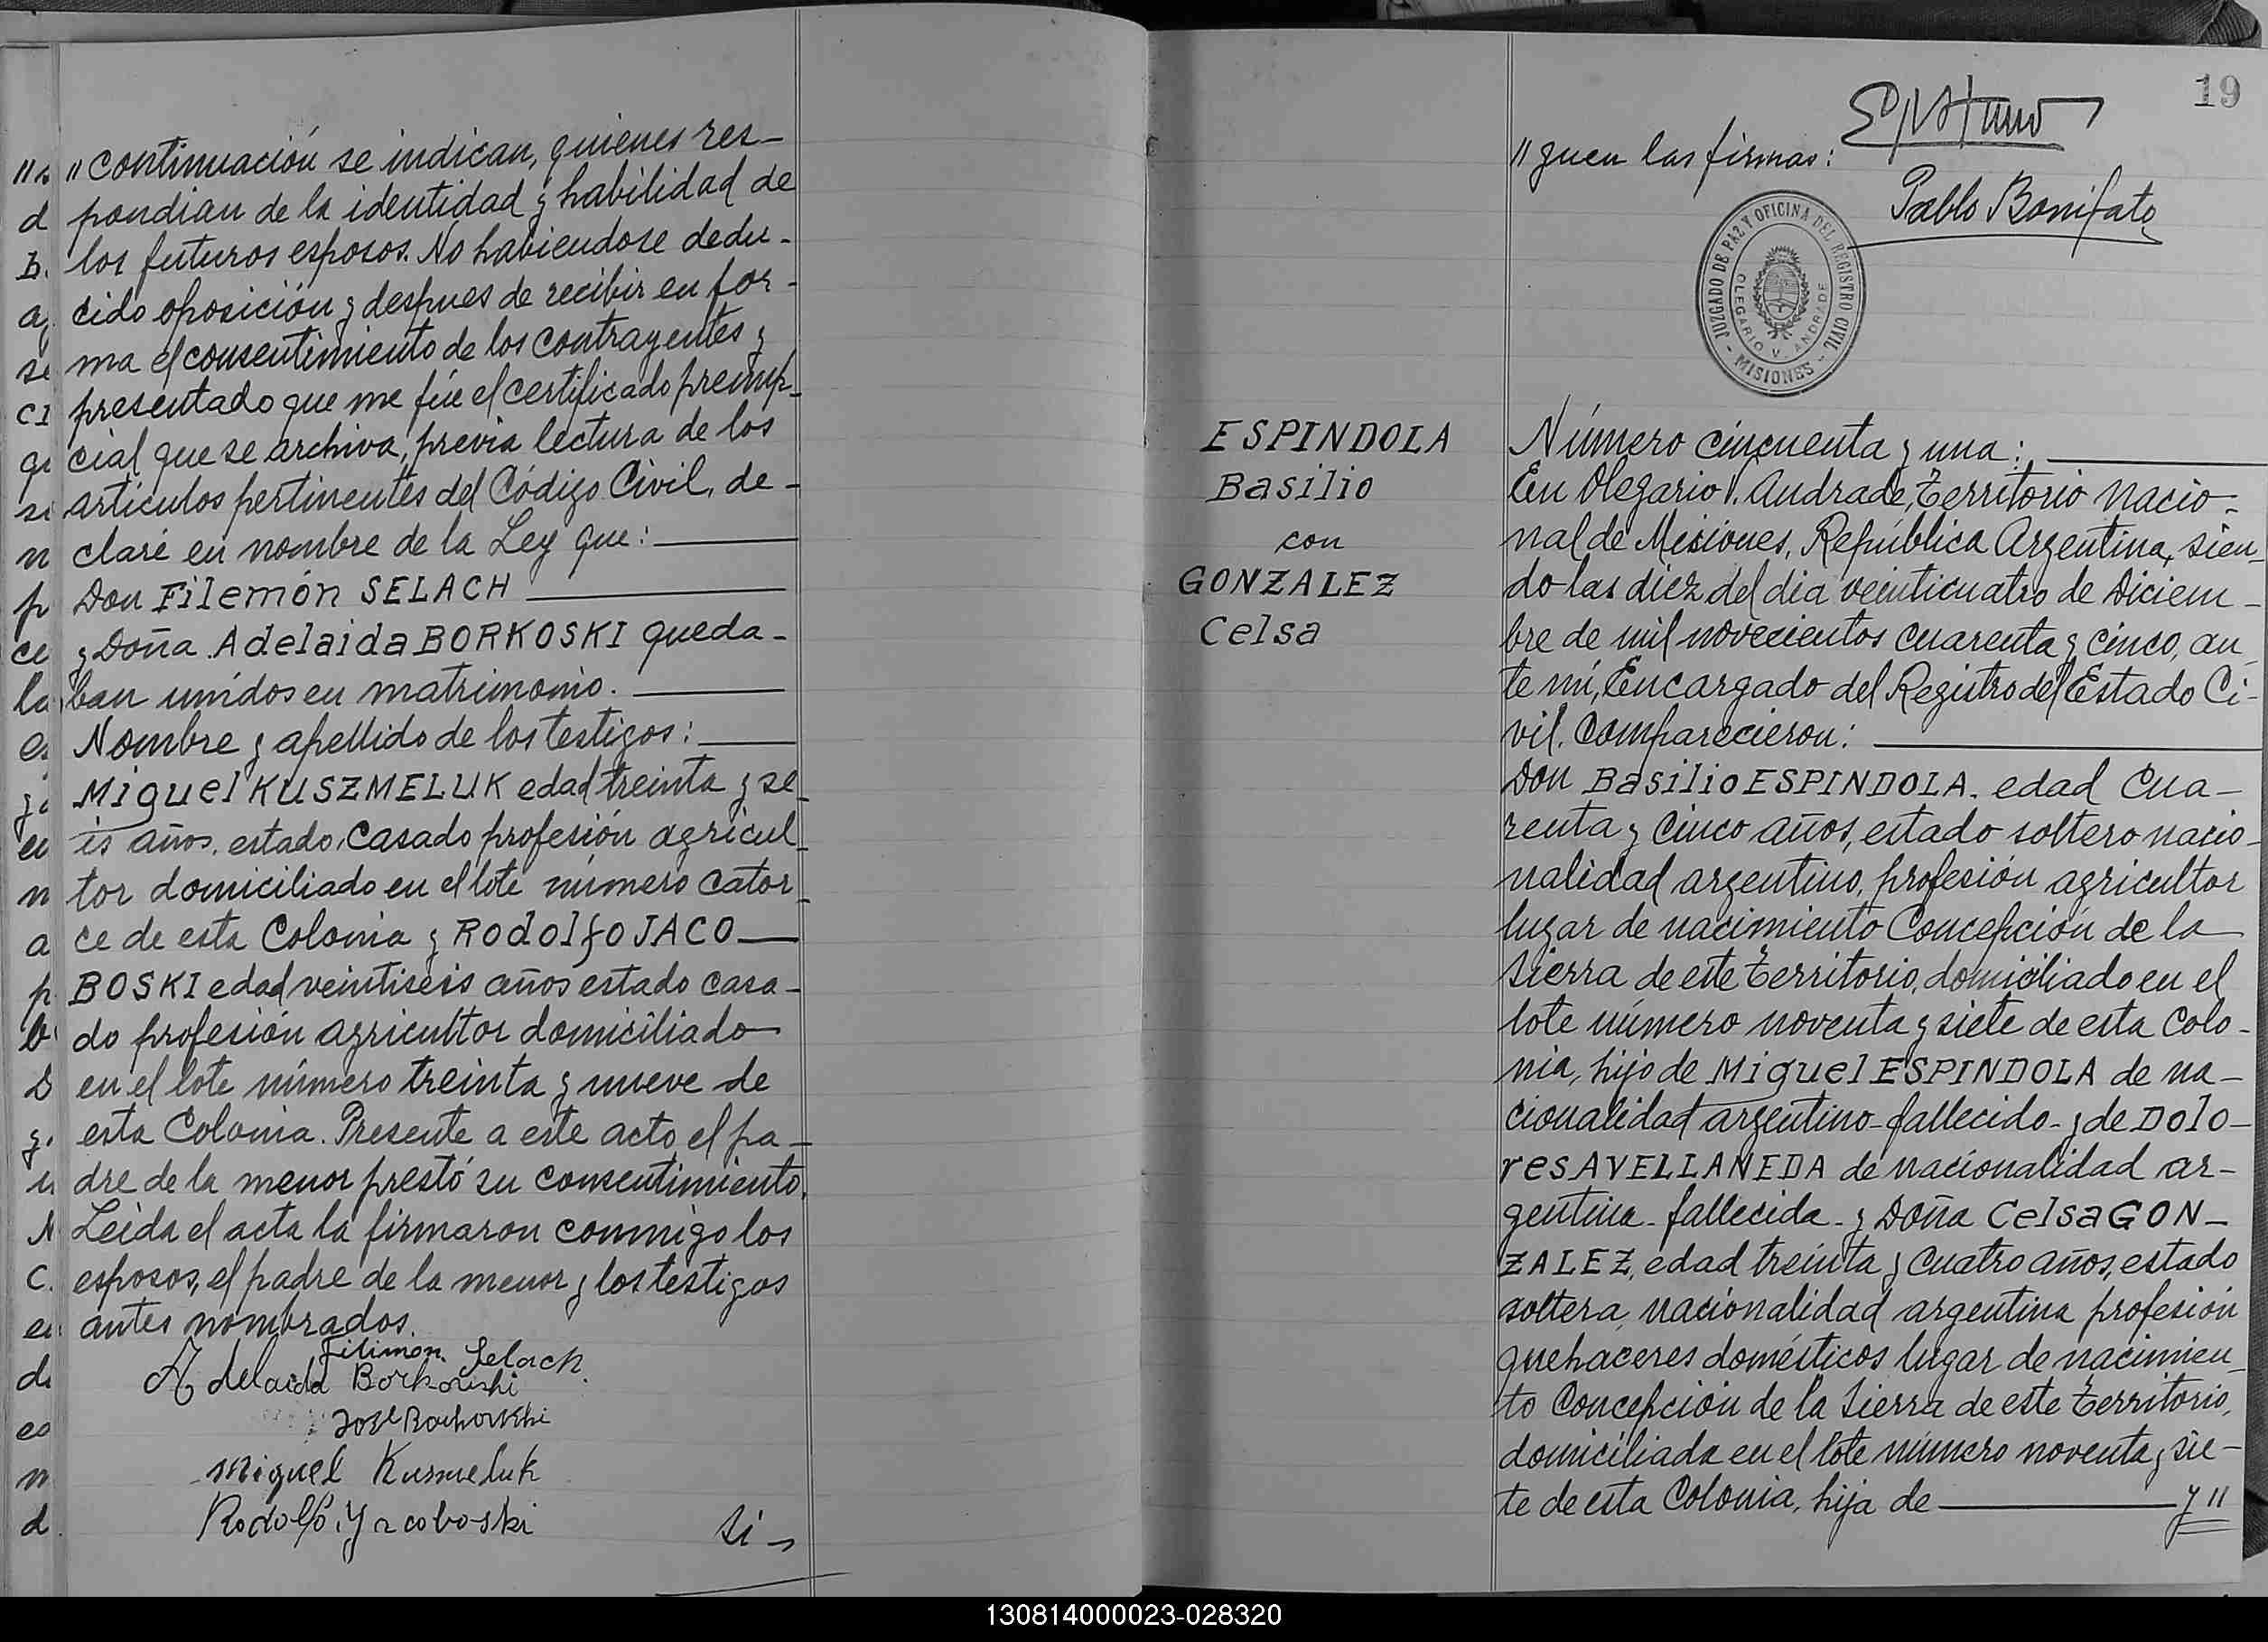 "continuación se indican, quienes res-
pondian de la identidad y habilidad de
los futuros esposos. No habiendose dedu-
cido oposición y despues de recibir en for-
ma el consentimiento de los contrayentes y
presentado que me fué el certificado prenup-
cial que se archiva, previa lectura de los
artículos pertinentes del Código Civil, de-
claré en nombre de la Ley que:
Don Filemón SELACH
y Doña Adelaida BORKOSKI queda-
ban unidos en matrimonio.
Nombre y apellido de los testigos:
Miguel KUSZMELUK edad treinta y se-
is años, estado casado profesión agricul-
tor domiciliado en el lote número cator-
ce de esta Colonia y Rodolfo JACO-
BOSKI edad veintiseis años estado casa-
do profesión agricultor domiciliado
en el lote número treinta y nueve de
esta Colonia. Presente a este acto el pa-
dre de la menor prestó su consentimiento.
Leida el acta la firmaron conmigo los
esposos, el padre de la menor y los testigos
antes nombrados.
Filimon Selach.
Adelaida Borkoushi
Miguel Kusmeluk
Rodolfo Yacoboski
Si-
19
"guen las firmas:
Pablo Bonifato
JUZGADO DE PAZ Y OFICINA DEL REGISTRO CIVIL
OLEGARIO V. ANDRADE
- MISIONES -
ESPINDOLA
Basilio
con
GONZALEZ
Celsa
Número cincuenta y una:
En Olegario V. Andrade, Territorio Nacio-
nal de Misiones, República Argentina, sien-
do las diez del dia veinticuatro de Diciem-
bre de mil novecientos cuarenta y cinco, an-
te mí, Encargado del Registro del Estado Ci-
vil. Comparecieron:
Don Basilio ESPINDOLA. edad cua-
renta y cinco años, estado soltero nacio-
nalidad argentino, profesión agricultor
lugar de nacimiento Concepción de la
Sierra de este Territorio, domiciliado en el
lote número noventa y siete de esta Colo-
nia, hijo de Miguel ESPINDOLA de na-
cionalidad argentino-fallecido- y de Dolo-
res AVELLANEDA de nacionalidad ar-
gentina-fallecida- y Doña Celsa GON-
ZALEZ, edad treinta y cuatro años, estado
soltera, nacionalidad argentina profesión
quehaceres domésticos lugar de nacimien-
to Concepción de la Sierra de este Territorio,
domiciliada en el lote número noventa y sie-
te de esta Colonia, hija de y"
130814000023-028320